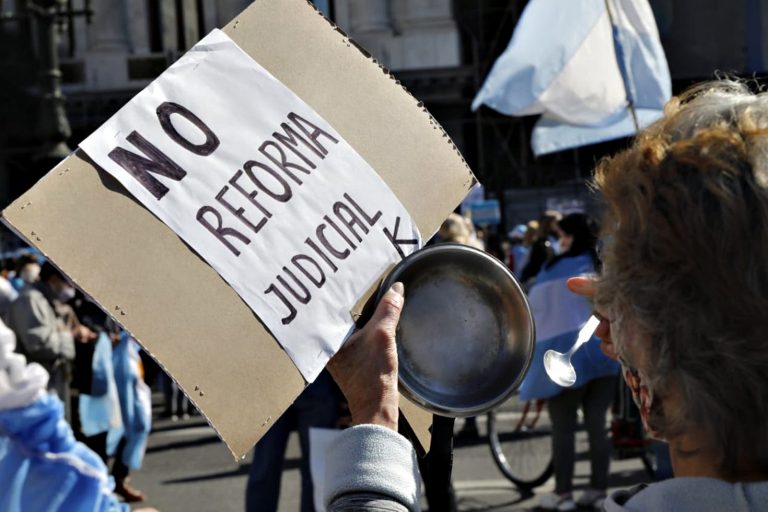 NO
REFORMA
JUDICIAL
K